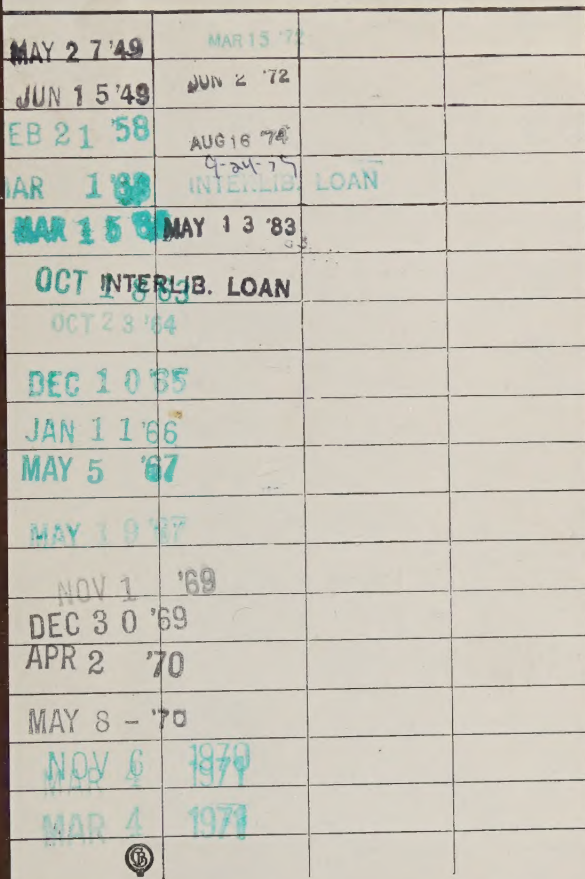 MAY 2 7 '49
JUN 1 5 '49
EB 21 '58
AR 1
MAR 1 5
OCT 1 8 63
OCT 2 3 '64
DEC 1 0 '65
JAN 1 1 '66
MAY 5 '67
MAY 1 9 '67
NOV 1 '69
DEC 3 0 '69
APR 2 '70
MAY 8 - '70
NOV 6 1970
MAR 4 1971
MAR 4 1971
MAR 15 '72
JUN 2 '72
AUG 16 '74
INTERLIB. LOAN
MAY 1 3 '83
INTERLIB. LOAN